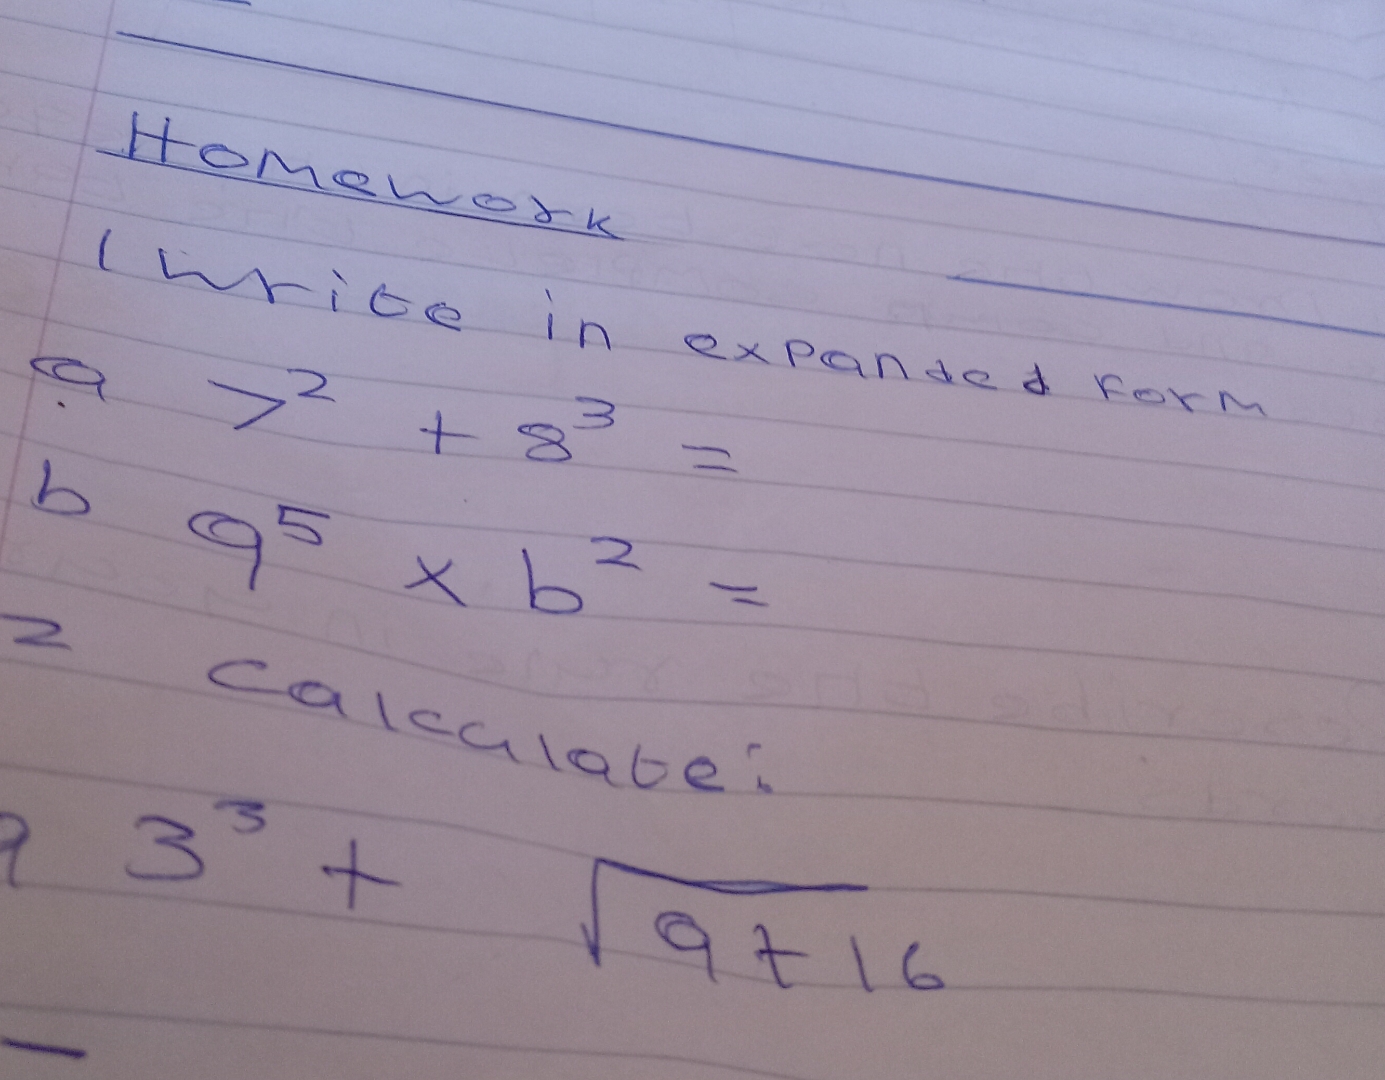 Homework
1 write in expanded form
a 7² + 8³ =
b a⁵ × b² =
2 calculate:
a 3³ + √9+16